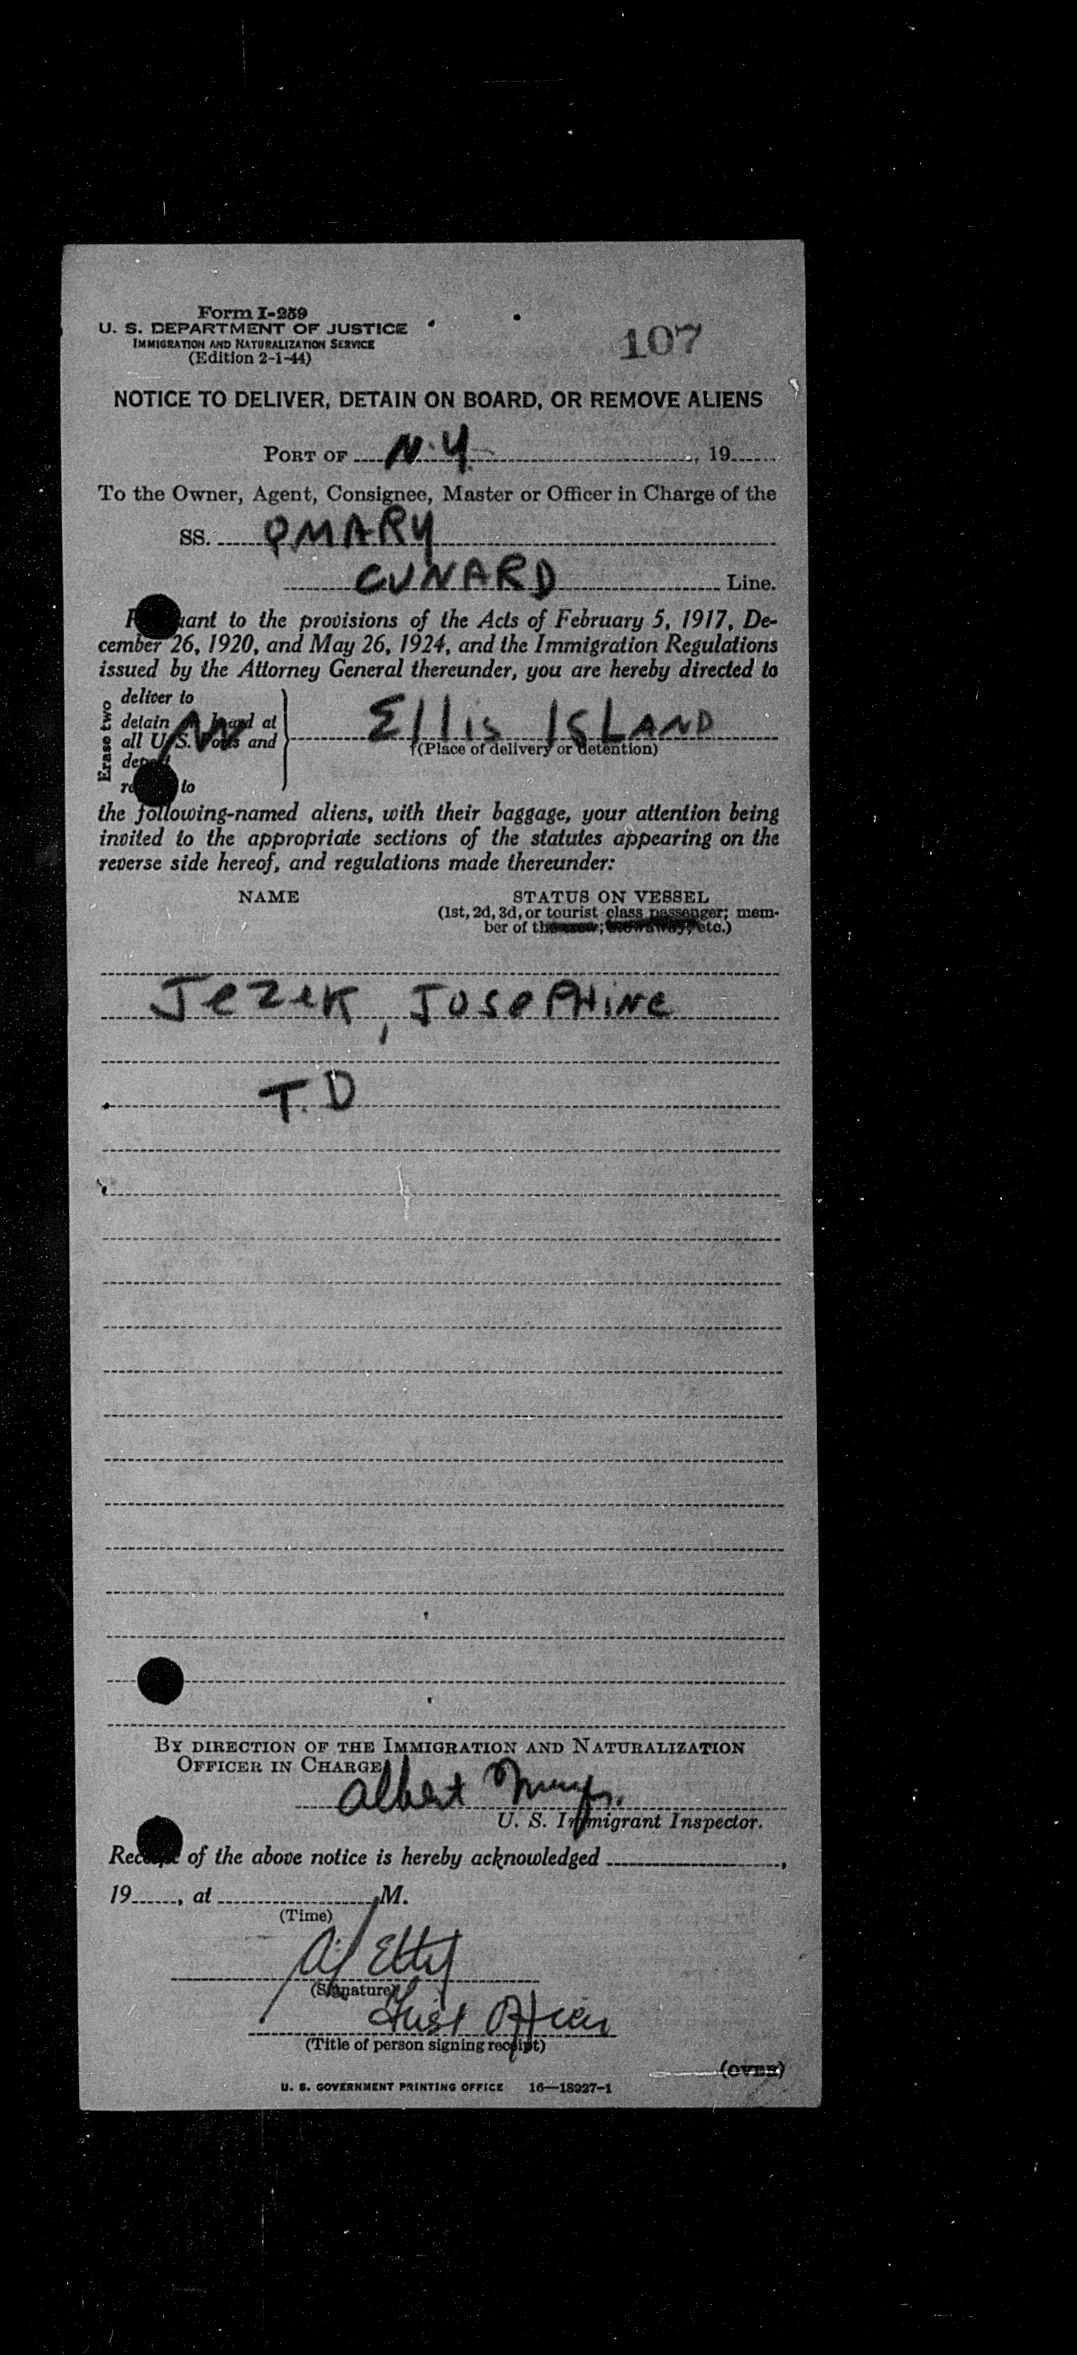 Form I-259
U. S. DEPARTMENT OF JUSTICE
IMMIGRATION AND NATURALIZATION SERVICE
(Edition 2-1-44)
107
NOTICE TO DELIVER, DETAIN ON BOARD, OR REMOVE ALIENS
PORT OF N.Y. , 19
To the Owner, Agent, Consignee, Master or Officer in Charge of the
SS. QMARY
CUNARD Line.
to the provisions of the Acts of February 5, 1917, De-
cember 26, 1920, and May 26, 1924, and the Immigration Regulations
issued by the Attorney General thereunder, you are hereby directed to
Erase two
deliver to
detain at
all U.S. and
to
Ellis ISLAND
(Place of delivery or detention)
the following-named aliens, with their baggage, your attention being
invited to the appropriate sections of the statutes appearing on the
reverse side hereof, and regulations made thereunder:
NAME STATUS ON VESSEL
(1st, 2d, 3d, or tourist class passenger; mem-
ber of etc.)
Jezek, JOSePHiNe
T.D
BY DIRECTION OF THE IMMIGRATION AND NATURALIZATION
OFFICER IN CHARGE
Albert
U. S. Immigrant Inspector.
Receipt of the above notice is hereby acknowledged ,
19 , at M.
(Time)
(Signature)
First Officer
(Title of person signing receipt)
(OVER)
U. S. GOVERNMENT PRINTING OFFICE 16—18927-1